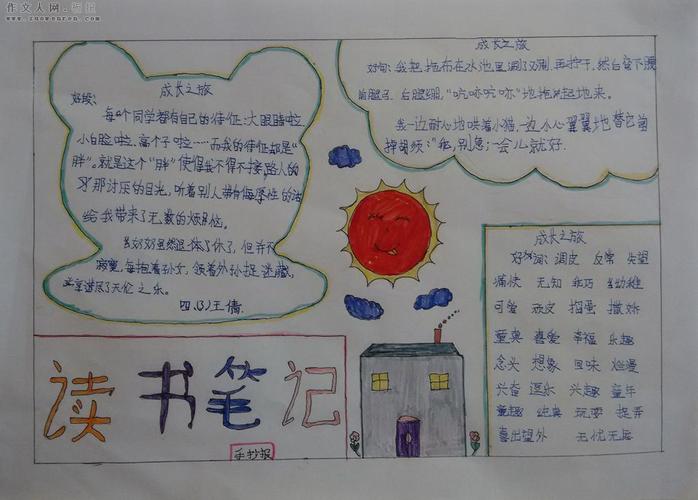 作文人网·新报
www.zuowenren.com
成长之旅
好段：
每个同学都有自己的特征：大眼睛啦，
小白脸啦，高个子啦……而我的特征却是“
胖”。就是这个“胖”使得我不得不接路人的
那讨厌的目光，听着别人带有侮辱性的话
给我带来了无数的烦恼。
奶奶虽然退休了，但并不
寂寞，每抱着孙女，领着外孙捉迷藏，
尽享天伦之乐。
四、(3)王倩
成长之旅
好句：我把拖布在水池里涮了又涮，再拧干，然后弯下腰
前腿弓，后腿绷，“吭哧吭哧”地拖起地来。
我一边耐心地哄着小猫，一边小心翼翼地替它
：“乖，别急，一会儿就好。
成长之旅
好词：调皮 反常 失望
痛快 无知 乖巧 幼稚
可爱 顽皮 捣蛋 撒娇
童真 喜爱 幸福 乐趣
念头 想象 回味 烂漫
兴奋 逗乐 兴趣 童年
童趣 纯真 玩耍 捉弄
喜出望外 无忧无虑
读书笔记
手抄报